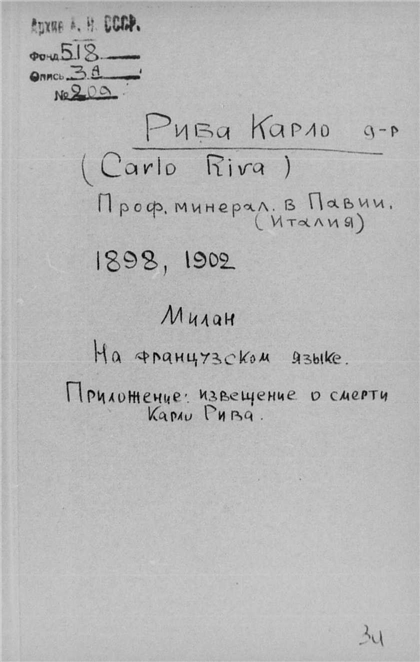 Архив А. Н. СССР.
Фонд 518
Опись 3А
№ 209
Рива Карло д-р
(Carlo Riva)
Проф. минерал. в Павии.
(Италия)
1898, 1902
Милан
На французском языке.
Приложение: извещение о смерти
Карло Рива.